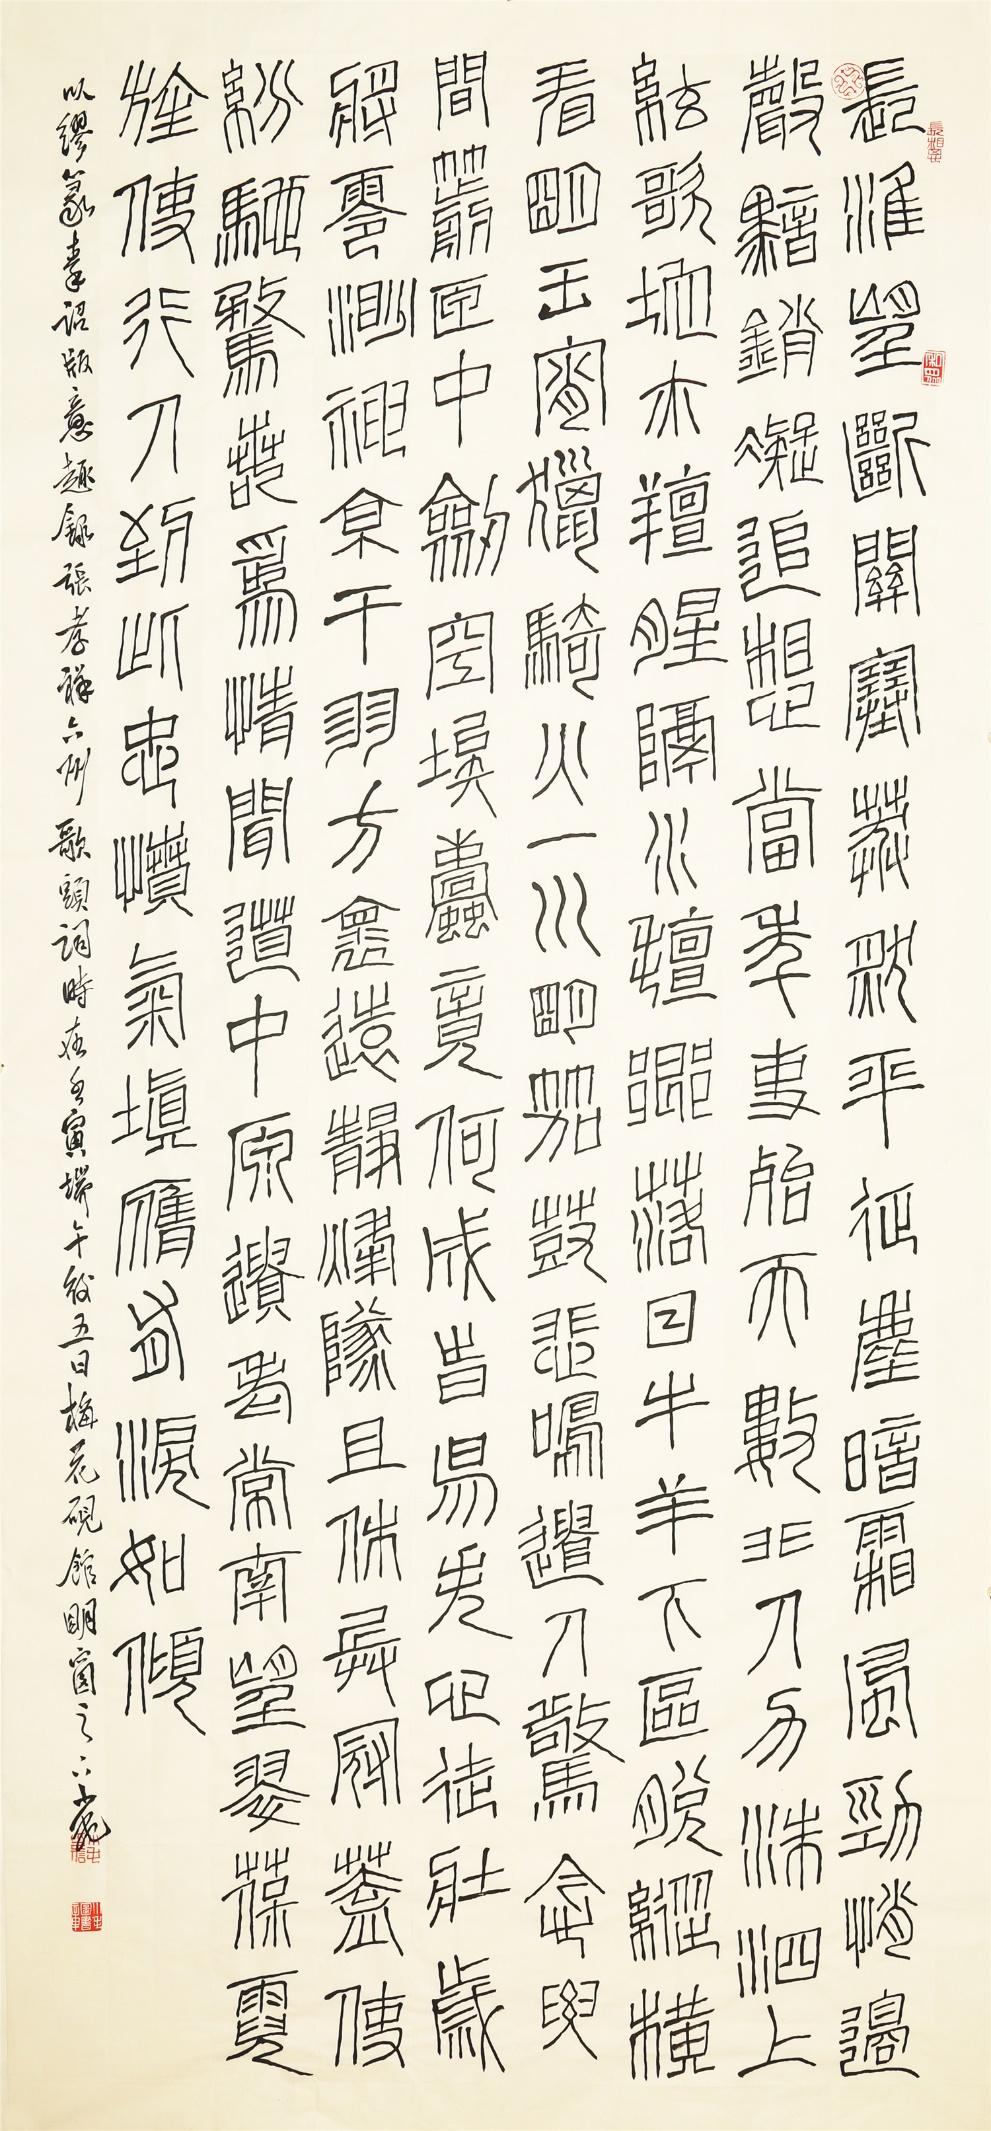 長淮望斷關塞莽然平征塵暗霜風勁悄邊
聲黯銷凝追想當年事殆天數非人力洙泗上
絃歌地亦羶腥隔水氈鄉落日牛羊下區脫縱橫
看明王宵獵騎火一川明笳鼓悲鳴遣人驚念腰
間箭匣中劍空埃蠹竟何成時易失心徒壯歲
將零渺神京干羽方懷遠靜烽燧且休兵冠蓋使
紛馳騖若為情聞道中原遺老常南望翠葆霓
旌使行人到此忠憤氣填膺有淚如傾
以繆篆秦詔版意趣錄張孝祥六州歌頭詞時在壬寅端午後五日梅花硯館明窗之下